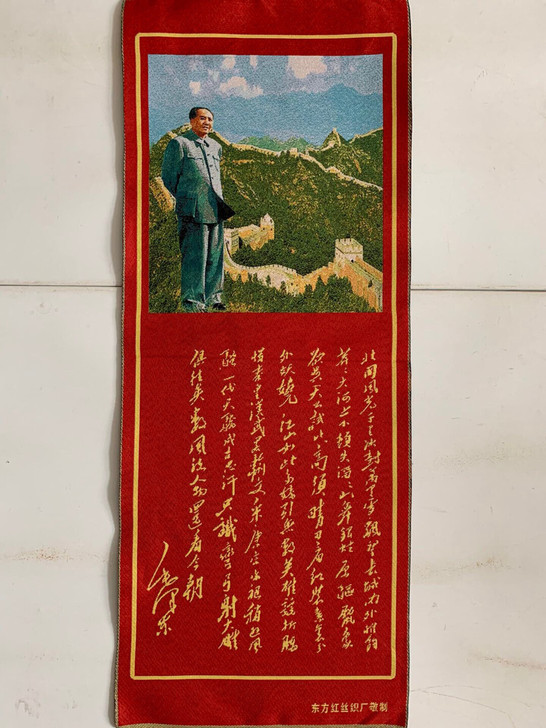 北国风光千里冰封万里雪飘望长城内外惟馀
莽々大河上下顿失滔々山舞银蛇原驱腊象
欲与天公试比高须晴日看红装素裹分
外妖娆江山如此多娇引无数英雄竞折腰
惜秦皇汉武略输文采唐宗宋祖稍逊风
骚一代天骄成吉思汗只识弯弓射大雕
俱往矣数风流人物还看今朝
毛泽东
东方红丝织厂敬制